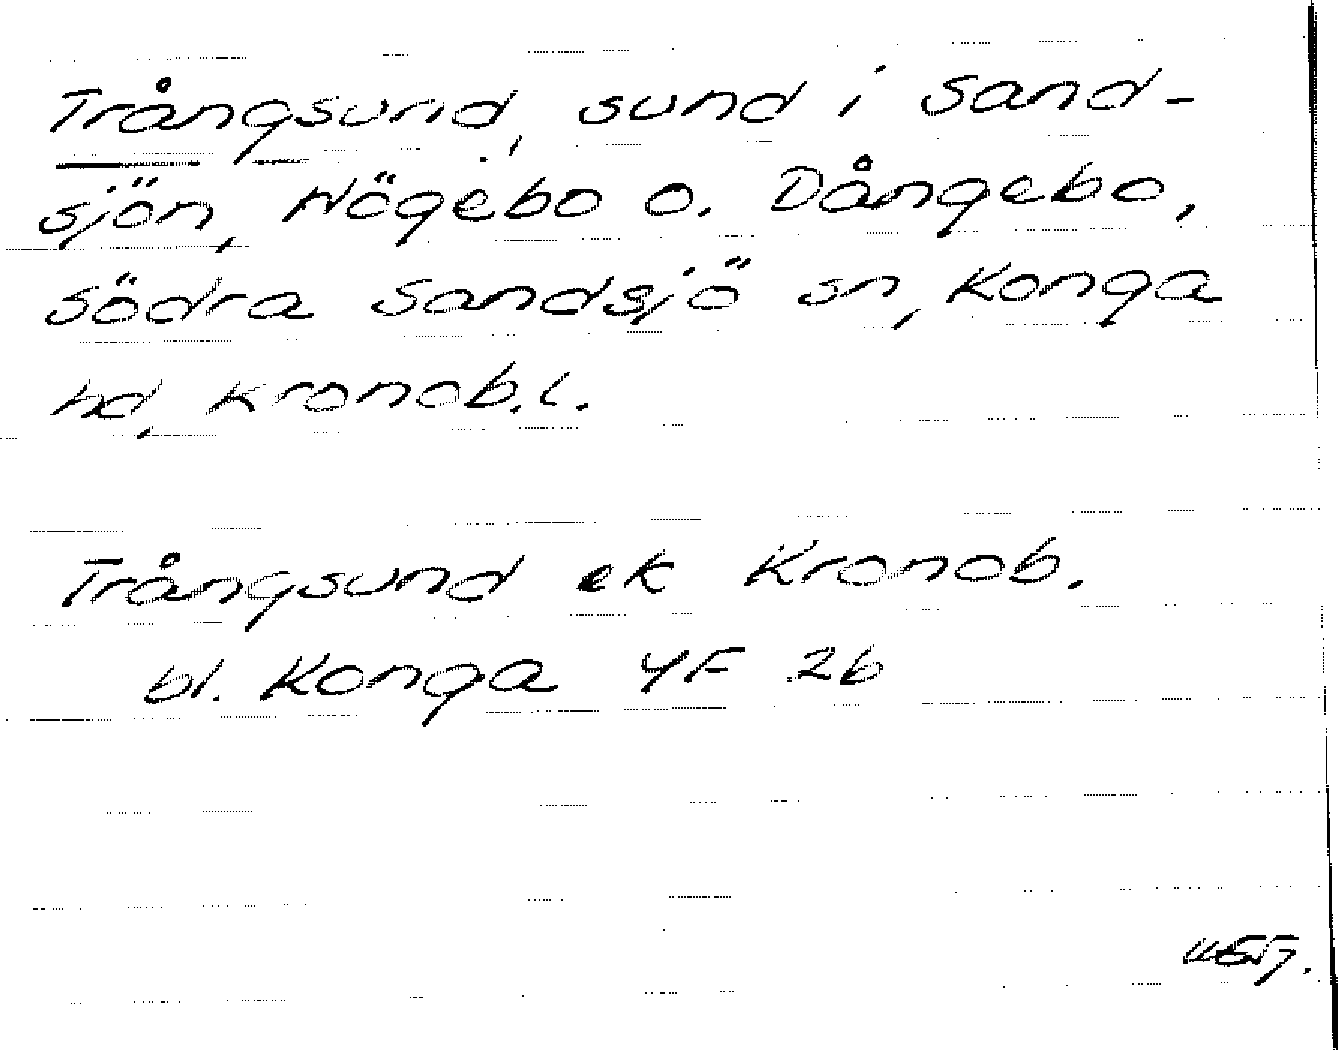 Trångsund, sund i Sand-
sjön, Högebo o. Dångebo,
södra Sandsjö sn, Konga
hd, Kronob.l.
Trångsund ek Kronob.
bl. Konga 4F 2b